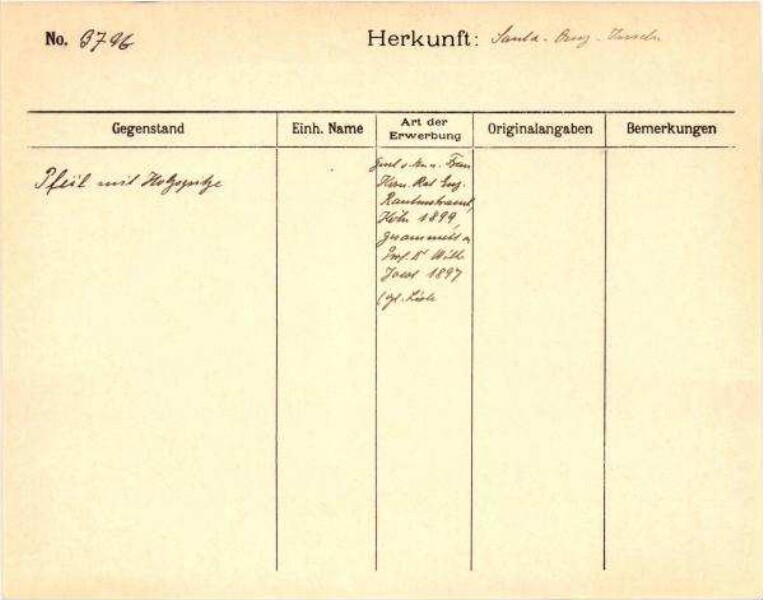 No. 3796 Herkunft: Santa-Cruz-Inseln
Gegenstand Einh. Name Art der Erwerbung Originalangaben Bemerkungen
Pfeil mit Holzspitze
Frau
Rautenstrauch,
Köln 1899
gesammelt v.
Prof. Dr Wilh.
Joest 1897
(vgl. Liste